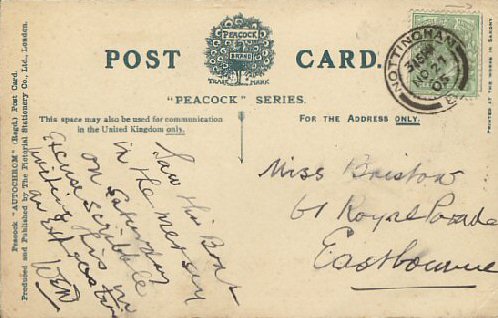 POST CARD.
PEACOCK
BRAND
TRADE MARK
"PEACOCK" SERIES.
This space may also be used for communication
in the United Kingdom only.
FOR THE ADDRESS ONLY.
Peacock "AUTOCHROM" (Regd.) Post Card.
Produced and Published by The Pictorial Stationery Co., Ltd., London.
PRINTED AT THE WORKS IN SAXONY
NOTTINGHAM
3 15 PM
NO 21
05
Saw this Boat
in the Mersey
on Saturday
Excuse scribble
writing this in
an
Miss Bristow
61 Royal Parade
Eastbourne